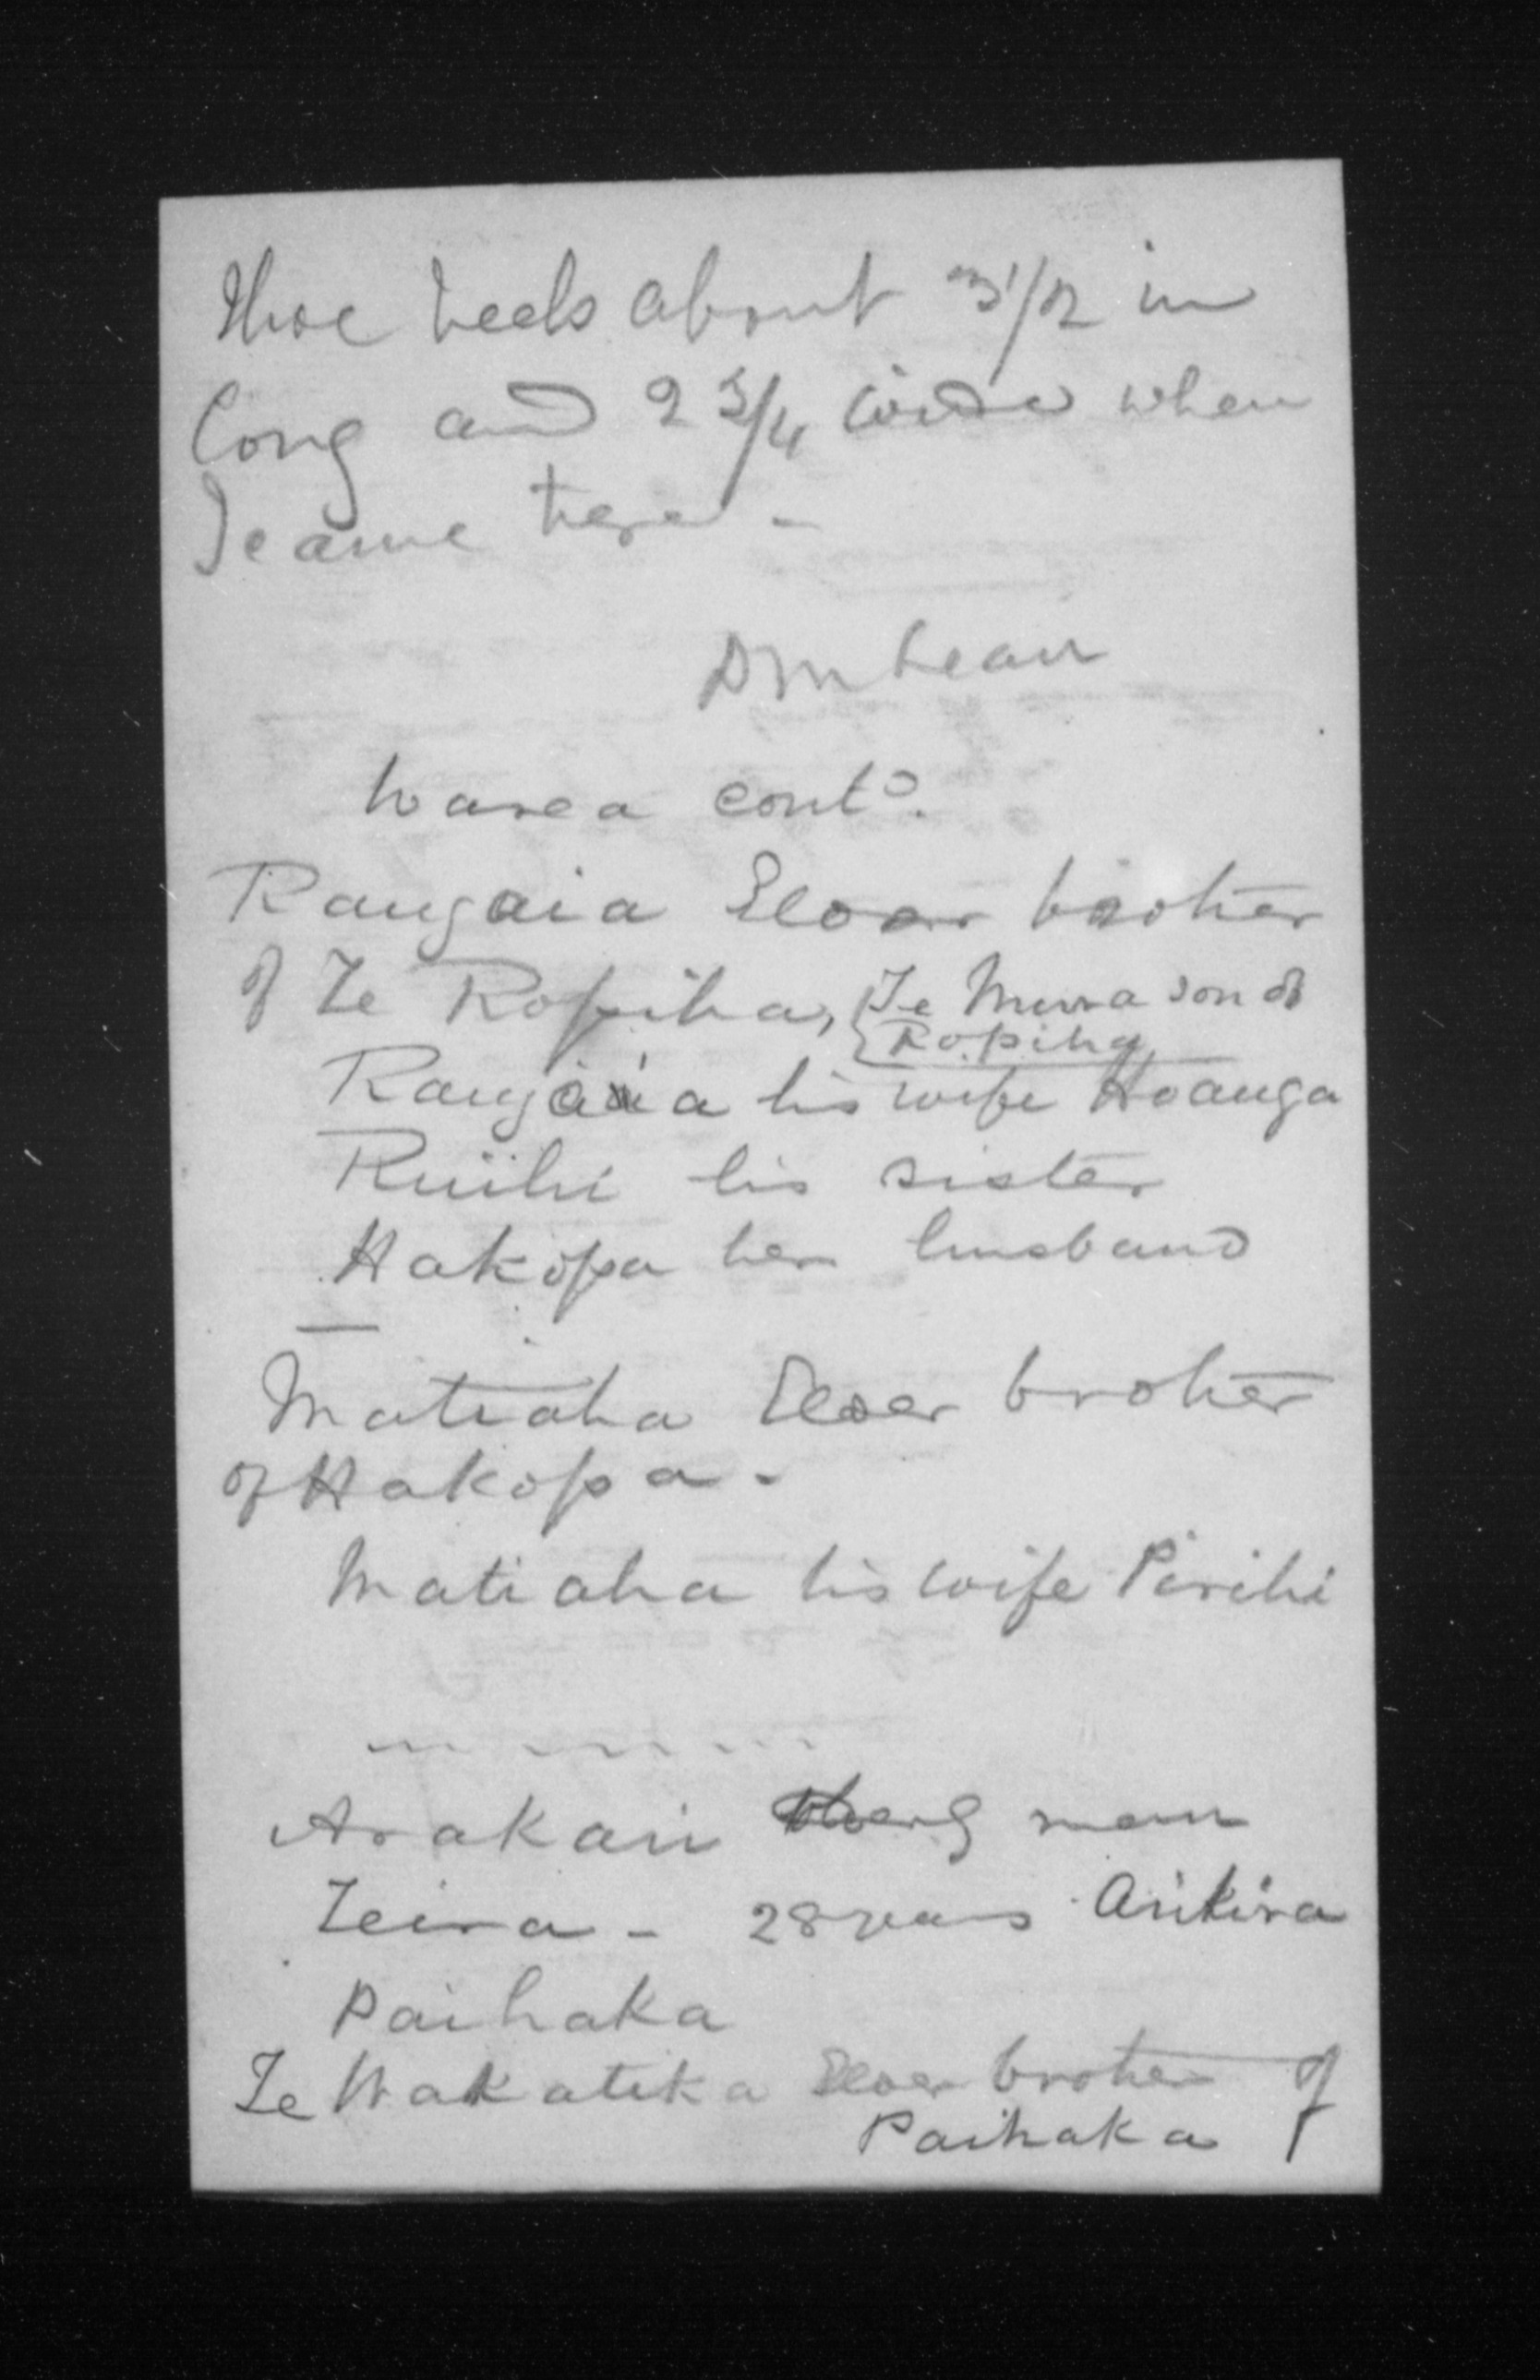 Shoe heels about 3 1/2 in
long and 2 3/4 wide when
I came here -
D McLean
Warea contd.
Rangaia Elder brother
of Te Ropiha, {Te Mura son of
Ropiha
Rangaia his wife Hoanga
Ruihi his sister
Hakopa her husband
Matiaha Elder brother
of Hakopa -
Matiaha his wife Pirihi
Arakari man
Teira - 28 years Arikira
Paihaka
Te Wakatika Elder brother of
Paihaka